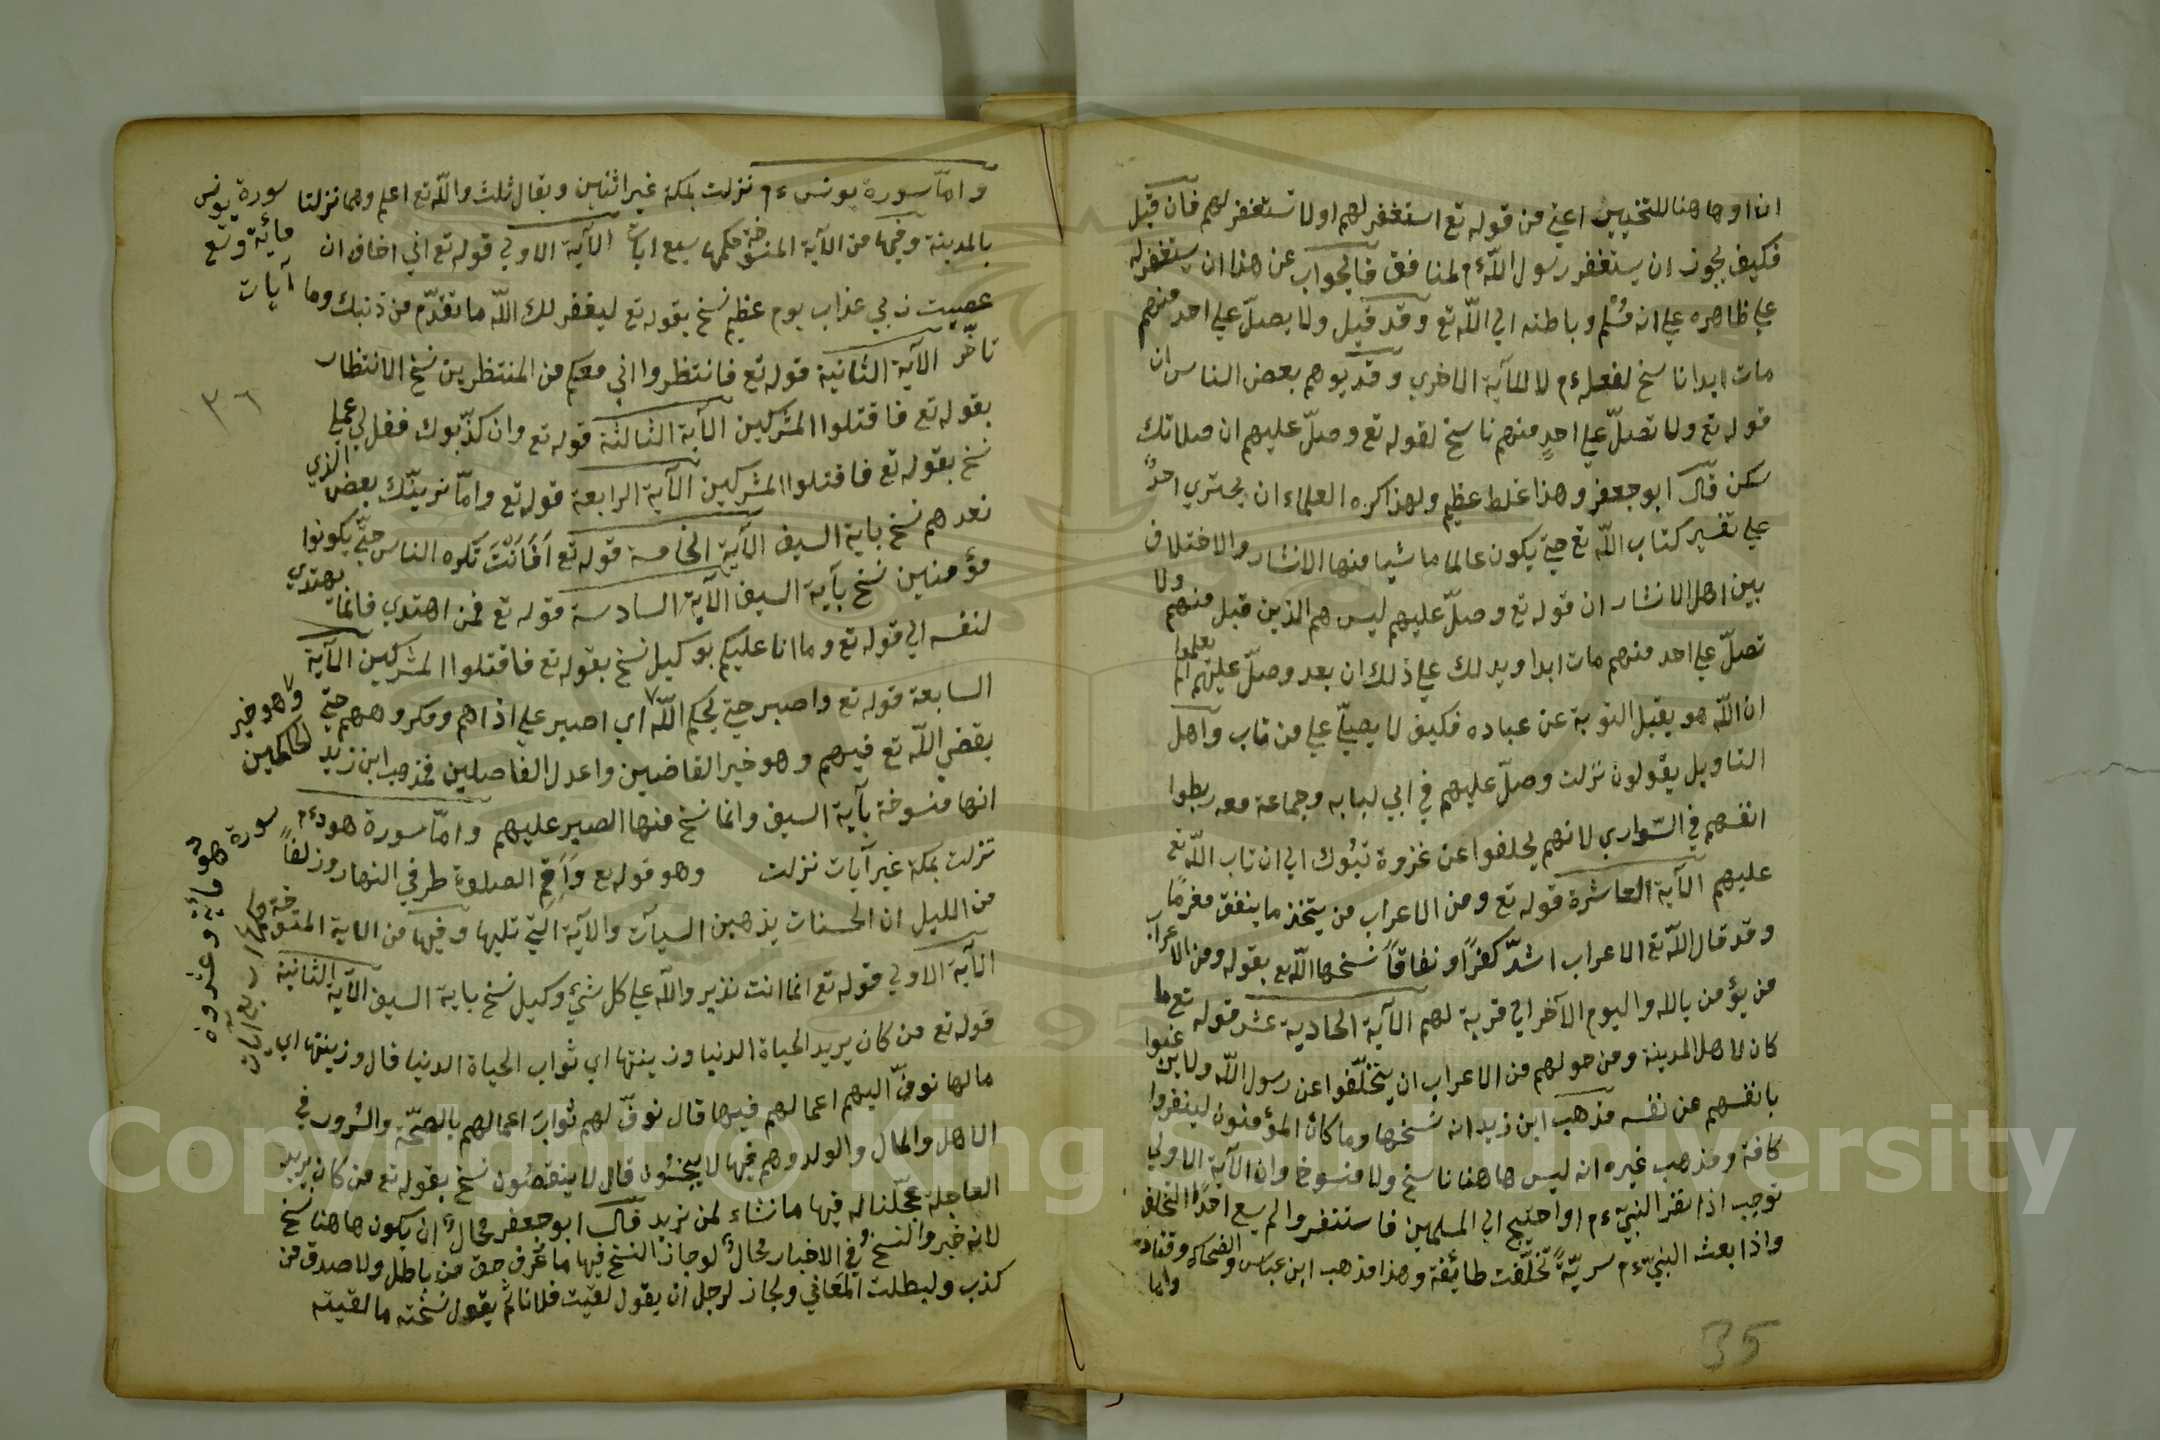 ان او هاهنا للتخيير اعني من قوله تع استغفر لهم اولا تستغفر لهم فان قيل
فكيف يجوز ان يستغفر رسول اللّه ءم لمنافق فالجواب عن هذا ان يستغفر له
علي ظاهره علي انه مُسْلم وباطنه الي اللّه تع وقد قيل ولا يصلّ علي احد منهم
مات ابدا ناسخ لفعله ءم لا للآية الاخري وقد يوهم بعض الناس ان
قوله تع ولا تصلّ علي احدٍ منهم ناسخ لقوله تع وصلّ عليهم ان صلاتك
سكن قال ابو جعفر وهذا غلط عظيم ولهذا كره العلماء ان يجتري احدٌ
علي تفسير كتاب اللّه تع حتي يكون عالما ماشيا منها الانشار والاختلاف
بين اهل الانشار ان قوله تع وصلّ عليهم ليس هم الذين قبل منهم ولا
تصلّ علي احد منهم مات ابدا ويدلك علي ذلك ان بعد وصلّ عليهم الم يعلموا
ان اللّه هو يقبل التوبة عن عباده فكيف لا يصلّي علي من تاب واهل
التاويل يقولون نزلت وصلّ عليهم في ابي لبابه وجماعة معه ربطوا
انفسهم في السّواري لانهم يخلفوا عن غزوة تبُوك الي ان تاب اللّه تع
عليهم الآية العاشرة قوله تع ومن الاعراب من يتخذ ما ينفق مغرمًا
وقد قال اللّه تع الاعراب اشدّ كفرًا ونفاقاً نسخها اللّه تع بقوله ومن الاعراب
من يؤمن بالله واليوم الآخر الي قربة لهم الآية الحادية عشر قوله تع ما
كان لاهل المدينة ومن حولهم من الاعراب ان يتخلّفوا عن رسول اللّه ولا يرغبوا
بانفسهم عن نفسه مذهب ابن زيد انه نسخها وما كان المؤمنون لينفروا
كافة ومذهب غيره انه ليس هاهنا ناسخ ولا منسوخ وان الآية الاولي
توجب اذا نفر النبيّ ءم او احتيج الي المسلمين فاستنفروا لم يسع احدًا التخلف
واذا بعث النبيّ ءم سريّةً تخلّفت طائفة وهذا مذهب ابن عباس والضحاك وقتادة
واما
35
وامّا سورة يونس ءم نزلت بمكة غير اثنين ويقال ثلث واللّه تع اعلم وهما نزلتا
سورة يونس
مائة وتسع
آيات
بالمدينة وفيها من الآية المنسوخة حكمها سبع ايات الآية الاولي قوله تع اني اخاف ان
عصيت ربي عذاب يوم عظيم نسخ بقوله تع ليغفر لك اللّه ما تقدّم من ذنبك وما
تاخّر الآية الثانية قوله تع فانتظروا اني معكم من المنتظرين نسخ الانتظار
٣٦
بقوله تع فاقتلوا المشركين الآية الثالثة قوله تع وان كذّبوك فقل لي عملي
نسخ بقوله تع فاقتلوا المشركين الآية الرابعة قوله تع وامّا نرينّك بعض الذي
نعدهم نسخ باية السيف الآية الخامسة قوله تع اَفَاَنْتَ تكره الناس حتّي يكونوا
مؤمنين نسخ بآية السيف الآية السادسة قوله تع فمن اهتدي فانما يهتدي
لنفسه الي قوله تع وما انا عليكم بوكيل نسخ بقوله تع فاقتلوا المشركين الآية
السابعة قوله تع واصبر حتي يحكم اللّه اي اصبر علي اذاهم ومكروههم حتي
وهو خير الحاكمين
يقضي اللّه تع فيهم وهو خير القاضين واعدل الفاصلين فمذهب ابن زيد
انها منسوخة بآية السيف وانما نسخ منها الصبر عليهم وامّا سورة هود ءم
سورة هود مائة وعشرون
نزلت بمكة غير آيات نزلت وهو قوله تع وَاَقِمِ الصلوة طرفي النهار وزلفاً
من الليل ان الحسنات يذهبن السيآت والآية التي تليها وفيها من الآية المنسوخة
حكمها اربع آيات
الآية الاولي قوله تع انما انت نذير واللّه علي كل شيٍ وكيل نسخ باية السيف الآية الثانية
قوله تع من كان يريد الحياة الدنيا وزينتها اي ثواب الحياة الدنيا قال وزينتها اي
مالها نوفّ اليهم اعمالهم فيها قال نوفّ لهم ثوابَ اعمالهم بالصّحّة والسُرور في
الاهل والمال والولد وهم فيها لا يبخسُون قال لا ينقصُون نسخ بقوله تع من كان يريد
العاجلة عجّلنا له فيها ما نشاء لمن نريد قال ابو جعفر محالٌ ان يكون هاهنا نسخ
لانه خبر والنسخُ في الاخبار محالٌ لو جاز النسخ فيها ما عُرف حق من باطل ولا صدق من
كذب ولبطلت المَعَاني ولجاز لرجل ان يقول لقيت فلانا ثم يقول نسخته ما لقيته
Copyright © King Saud University